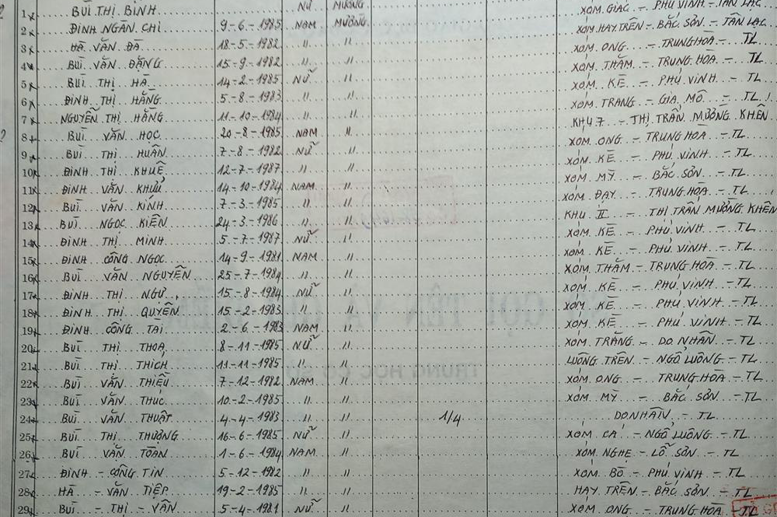 1 BUÌ THỊ BÌNH NỮ MƯỜNG XÓM GIÁC - PHÚ VINH - TÂN LẠC
2 ĐINH NGÂN CHI 9-6-1985 NAM MƯỜNG XÓM HAY TRÊN - BẮC SƠN - TÂN LẠC
3 HÀ VĂN ĐÀ 18-5-1982 " " XÓM ONG - TRUNG HÒA - TL
4 BUÌ VĂN ĐẶNG 15-9-1982 " " XÓM THĂM - TRUNG HÒA - TL
5 BUÌ THỊ HÀ 14-2-1985 NỮ " XÓM KẼ - PHÚ VINH - TL
6 ĐINH THỊ HẰNG 5-8-1983 " " XÓM TRANG - GIA MÔ - TL
7 NGUYỄN THỊ HẰNG 11-10-1984 " " KHU 7 - THỊ TRẤN MƯỜNG KHẾN
8 BUÌ VĂN HỌC 20-8-1985 NAM " XÓM ONG - TRUNG HÒA - TL
9 BUÌ THỊ HUÂN 7-8-1982 NỮ " XÓM KẼ - PHÚ VINH - TL
10 ĐINH THỊ KHUÊ 12-7-1987 " " XÓM MỸ - BẮC SƠN - TL
11 ĐINH VĂN 14-10-1984 NAM " XÓM ĐAY - TRUNG HÒA - TL
12 BUÌ VĂN KÍNH 7-3-1985 " " KHU II - THỊ TRẤN MƯỜNG KHẾN
13 BUÌ NGỌC KIÊN 24-3-1986 " " XÓM KẼ - PHÚ VINH - TL
14 ĐINH THỊ MINH 5-7-1987 NỮ " XÓM KẼ - PHÚ VINH - TL
15 ĐINH CÔNG NGỌC 14-9-1981 NAM " XÓM THĂM - TRUNG HÒA - TL
16 BUÌ VĂN NGUYỄN 25-7-1984 " " XÓM KẼ - PHÚ VINH - TL
17 ĐINH THỊ NGƯ 15-8-1984 NỮ " XÓM KẼ - PHÚ VINH - TL
18 ĐINH THỊ QUYÊN 15-2-1983 " " XÓM KẼ - PHÚ VINH - TL
19 ĐINH CÔNG TÀI 2-6-1983 NAM " XÓM TRĂNG - DO NHÂN - TL
20 BUÌ THỊ THOA 8-11-1985 NỮ " LUÔNG TRÊN - NGỔ LUÔNG - TL
21 BUÌ THỊ THÍCH 11-11-1985 " " XÓM ONG - TRUNG HÒA - TL
22 BUÌ VĂN THIẾU 7-12-1982 NAM " XÓM MỸ - BẮC SƠN - TL
23 BUÌ VĂN THỨC 10-2-1985 " " DO NHÂN - TL
24 BUÌ VĂN THUẬT 4-4-1983 " " 1/4 XÓM CÁ - NGỔ LUÔNG - TL
25 BUÌ THỊ THƯƠNG 16-6-1985 NỮ " XÓM NGHE - LỖ SƠN - TL
26 BUÌ VĂN TOÀN 1-6-1984 NAM " XÓM BÒ - PHÚ VINH - TL
27 ĐINH - CÔNG TIN 5-12-1982 " " HAY TRÊN - BẮC SƠN - TL
28 HÀ - VĂN TIỆP 19-2-1985 " " XÓM ONG - TRUNG HÒA - TL
29 BUÌ - THỊ - VÂN 5-4-1981 NỮ "
GỌI TÊN VÀ
TRUNG HỌC CƠ SỞ